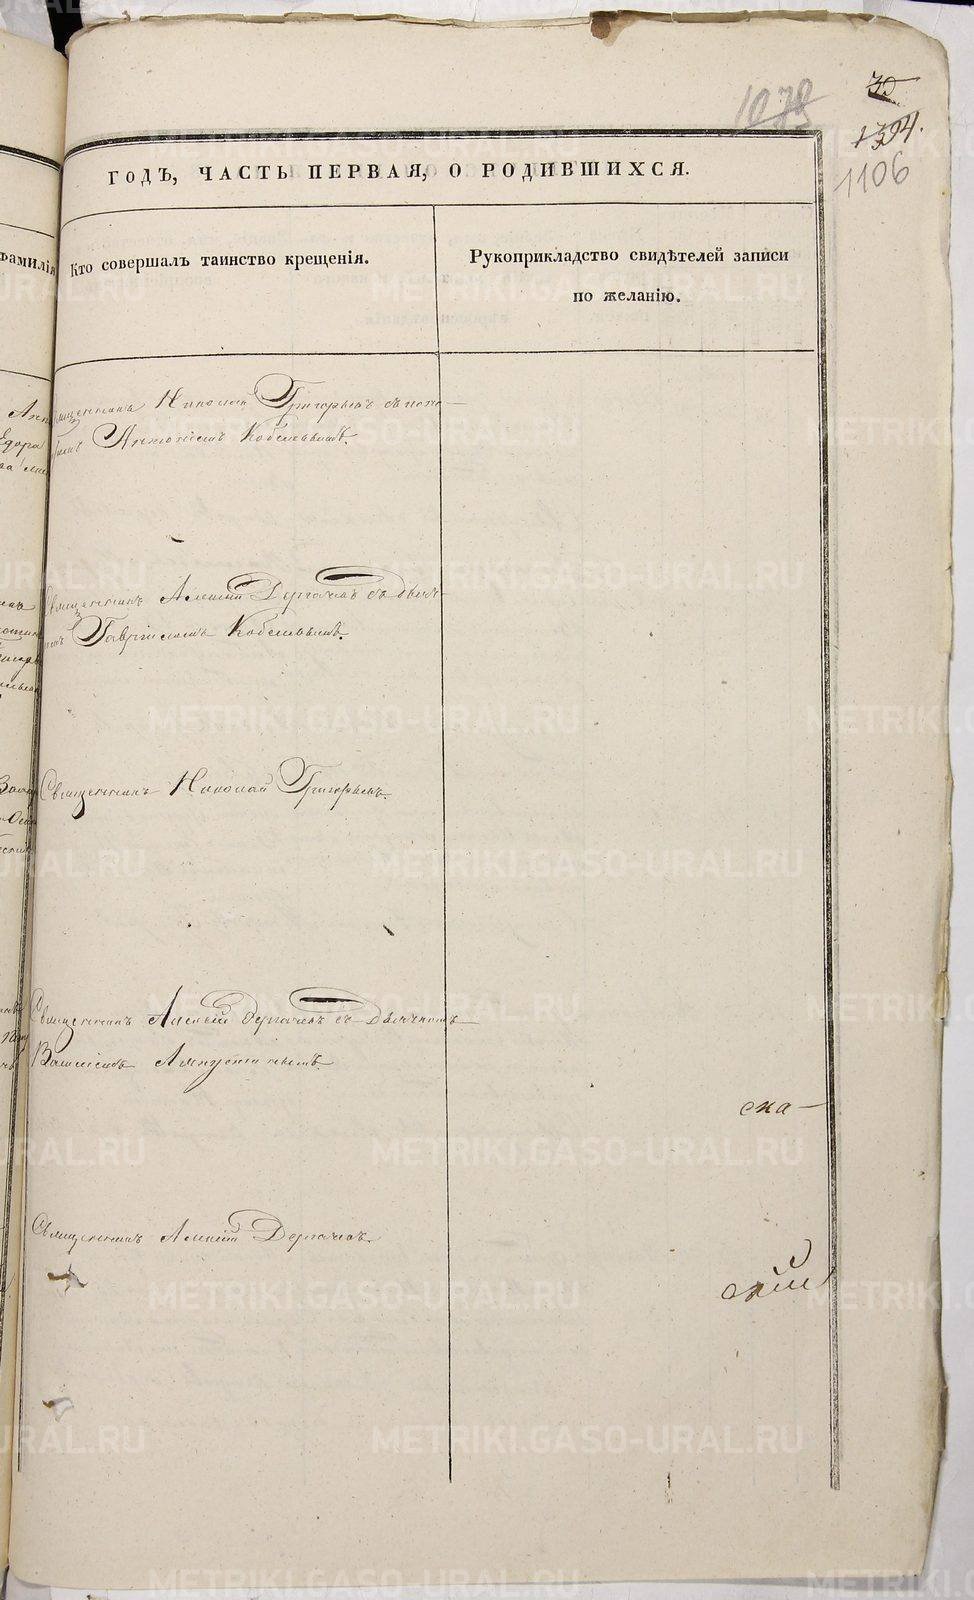 30
1078
1394.
1106
ГОДЪ, ЧАСТЬ ПЕРВАЯ, О РОДИВШИХСЯ.
Фамилія
Кто совершалъ таинство крещенія.
Рукоприкладство свидѣтелей записи
по желанію.
Николай Григорьевъ съ
Антоніемъ Кобелевымъ.
Священникъ Алексій Дергачевъ съ дьяч-
Гавріиломъ Кобелевымъ.
Священникъ Николай Григорьевъ.
Священникъ Алексій Дергачевъ съ Дьячкомъ
Василіемъ
ска-
Священникъ Алексій Дергачевъ.
скій
METRIKI.GASO-URAL.RU